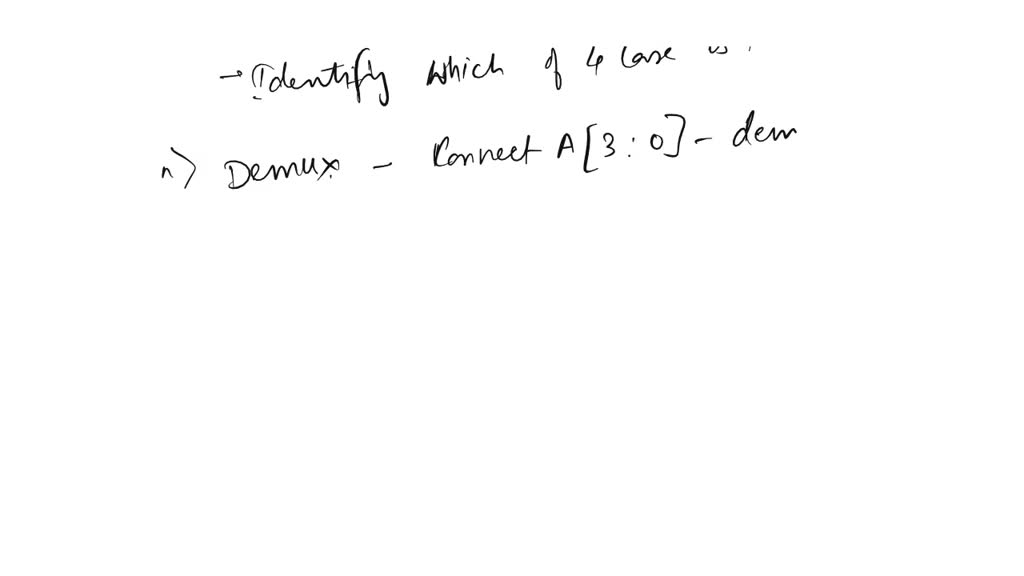 → Identify which of 4 case is
n) Demux - Connect A[3:0] - dem